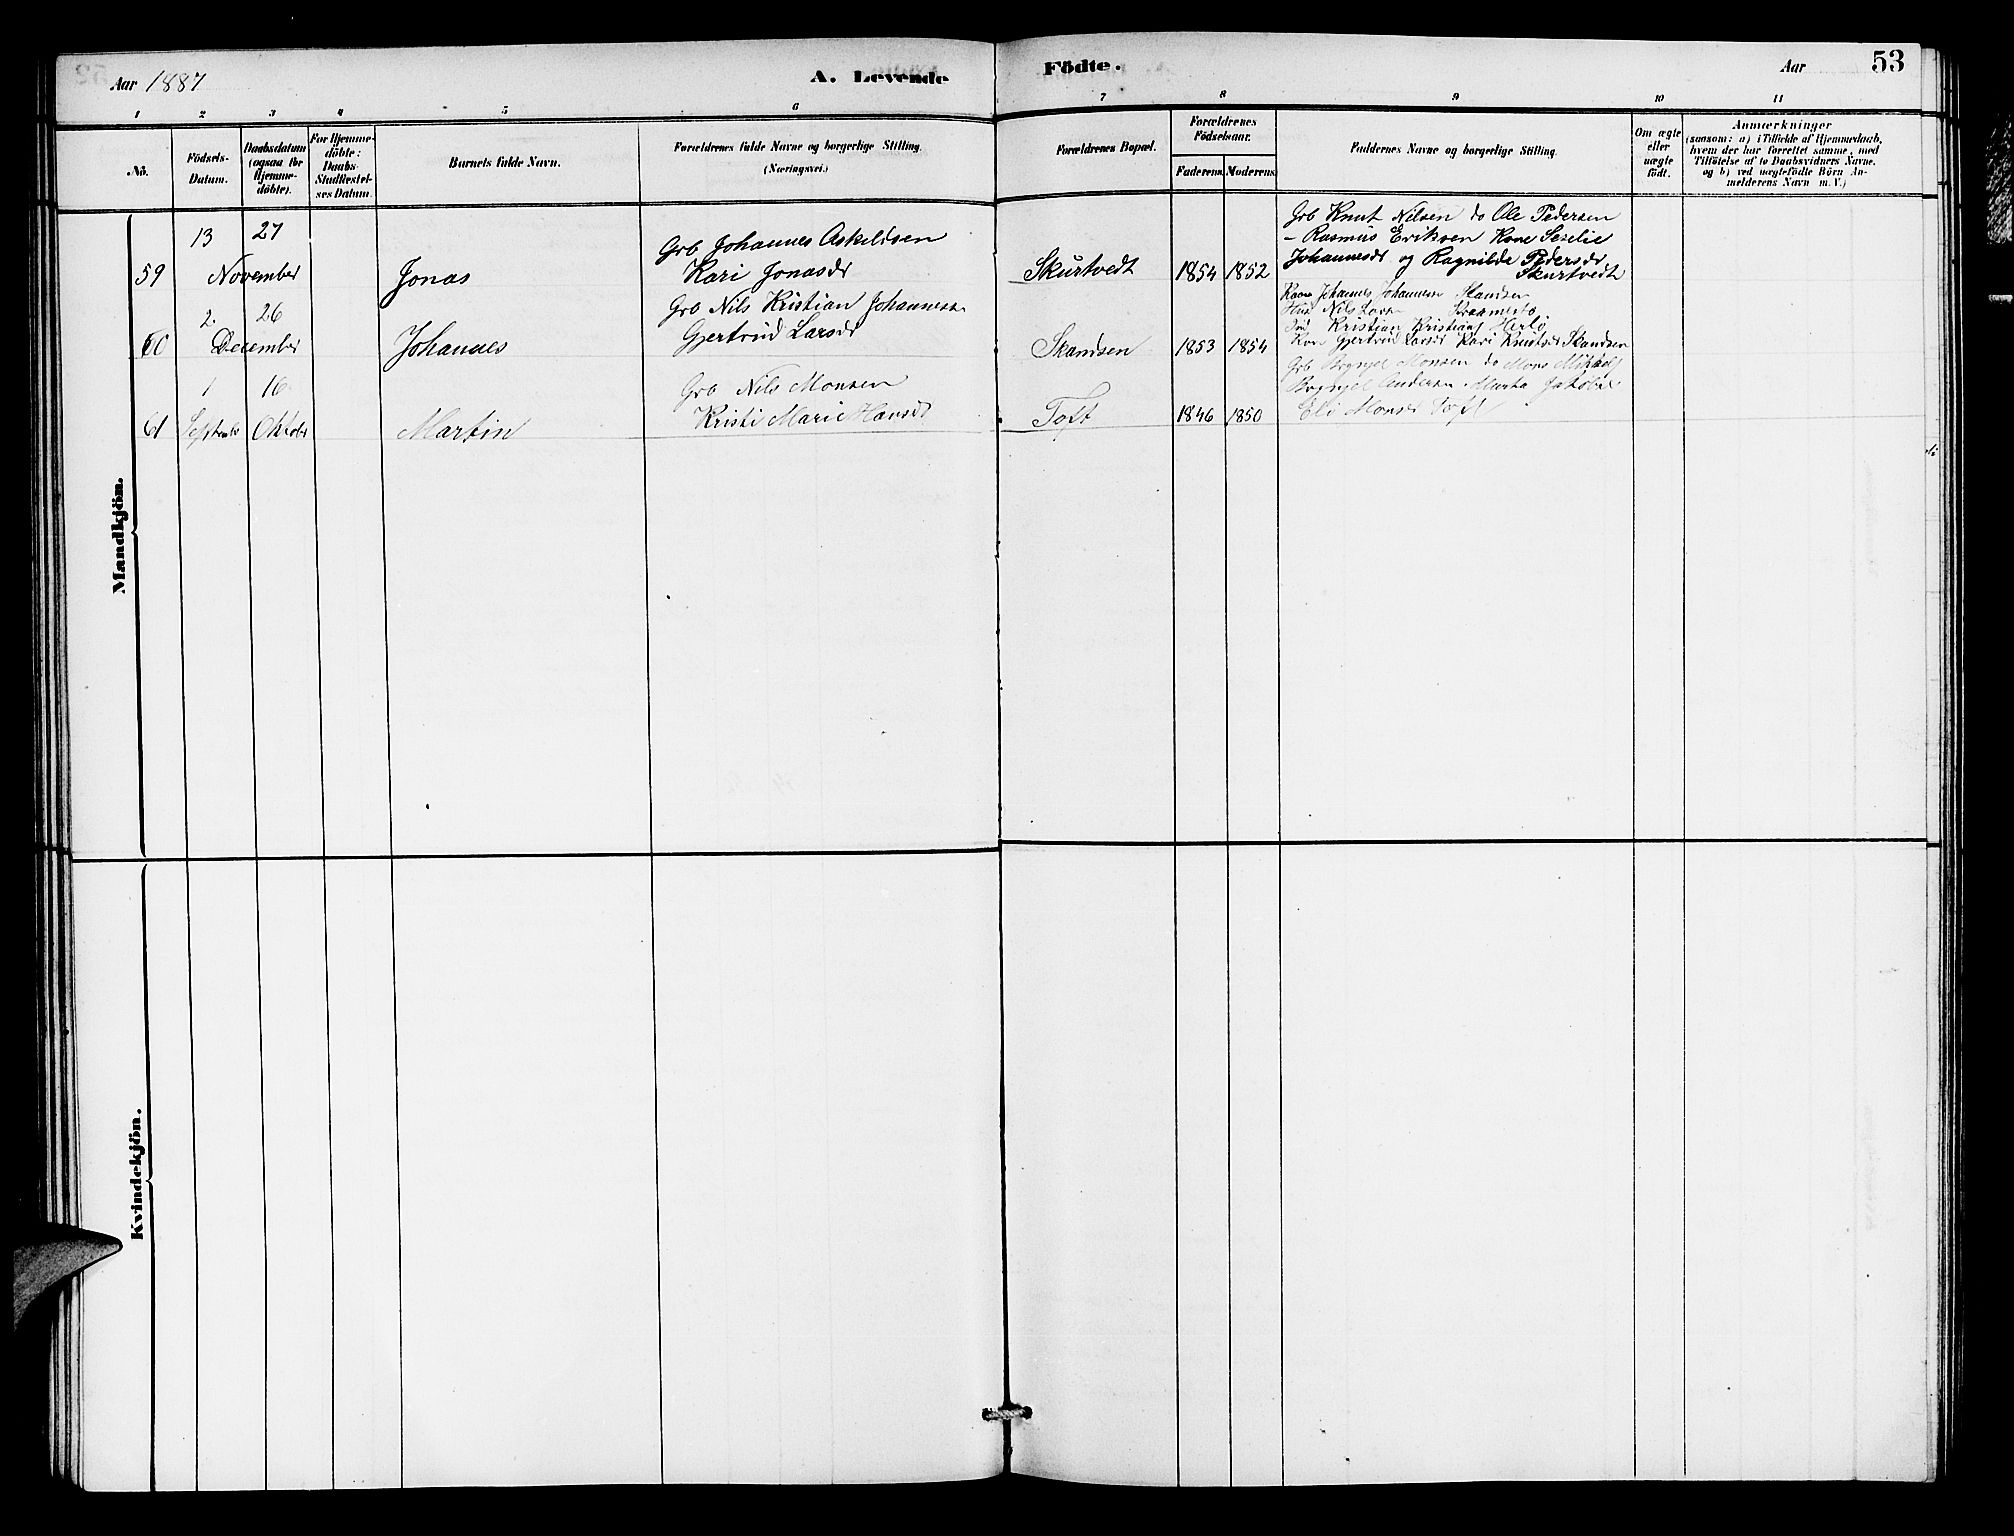 Aar 1887
A. Levende
Födte.
Aar
53
1 2 3 4 5 6 7 8 9 10 11
No.
Födsels-Datum.
Daabsdatum (ogsaa for Hjemmedöbte).
For Hjemmedöbte: Daabs Stadfæstelses Datum.
Barnets fulde Navn.
Forældrenes fulde Navne og borgerlige Stilling.
(Næringsvei.)
Forældrenes Bopæl.
Forældrenes Födselsaar.
Faderens. Moderens.
Faddernes Navne og borgerlige Stilling.
Om ægte eller uægte födt.
Anmærkninger
(saasom: a) i Tilfælde af Hjemmedaab, hvem der har forrettet samme, med Tilföielse af to Daabsvidners Navne. og b) ved uægtefödte Börn Anmelderens Navn m. V.)
Mandkjön.
59
13 27
November
Jonas
Grb Johannes Askeldsen
Kari Jonasdr
Skurtvedt
1854 1852
Grb Knut Nilsen do Ole Pedersen
- Rasmus Eriksen Kone Seselie
Johannesdr og Ragnilde Pedersdr
Skurtvedt
60
2. 26
December
Johannes
Grb Nils Kristian Johannesen
Gjertrud Larsdr
Skandsen
1853 1854
Johannes Johannesen Skandsen
Nils
Kristian Kristians Herlö
Kon Gjertrud Larsdr Kari Knutsdr Skandsen
61
1 16
Septembr Oktobr
Martin
Grb Nils Monsen
Kristi Marie Hansdr
Toft
1846 1850
Grb Brynjel Monsen do Mons Mikkels
Brynjel Andersen Marta Jakobsd
Eli Monsdr Toft
Kvindekjön.